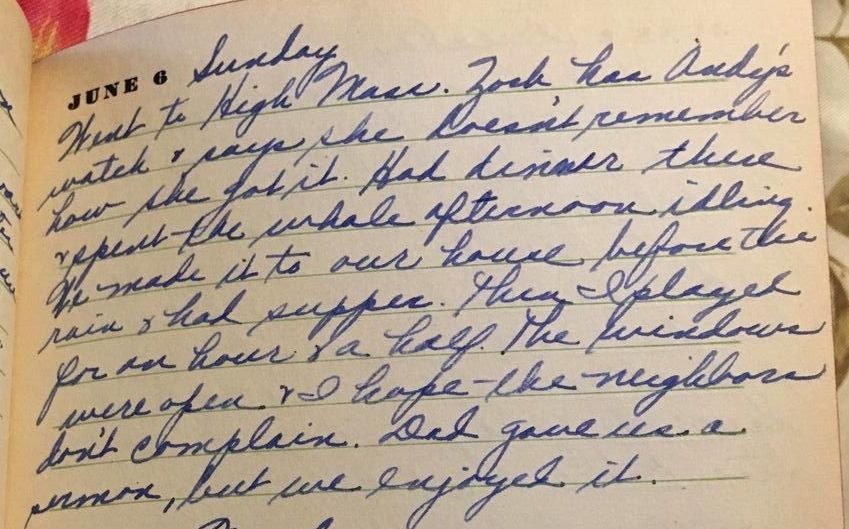 JUNE 6 Sunday
Went to High Mass. Zosh has Andy's
watch & says she doesn't remember
how she got it. Had dinner there
& spent the whole afternoon idling.
We made it to our house before the
rain & had supper. Then I played
for an hour & a half. The windows
were open & I hope the neighbors
don't complain. Dad gave us a
sermon, but we enjoyed it.